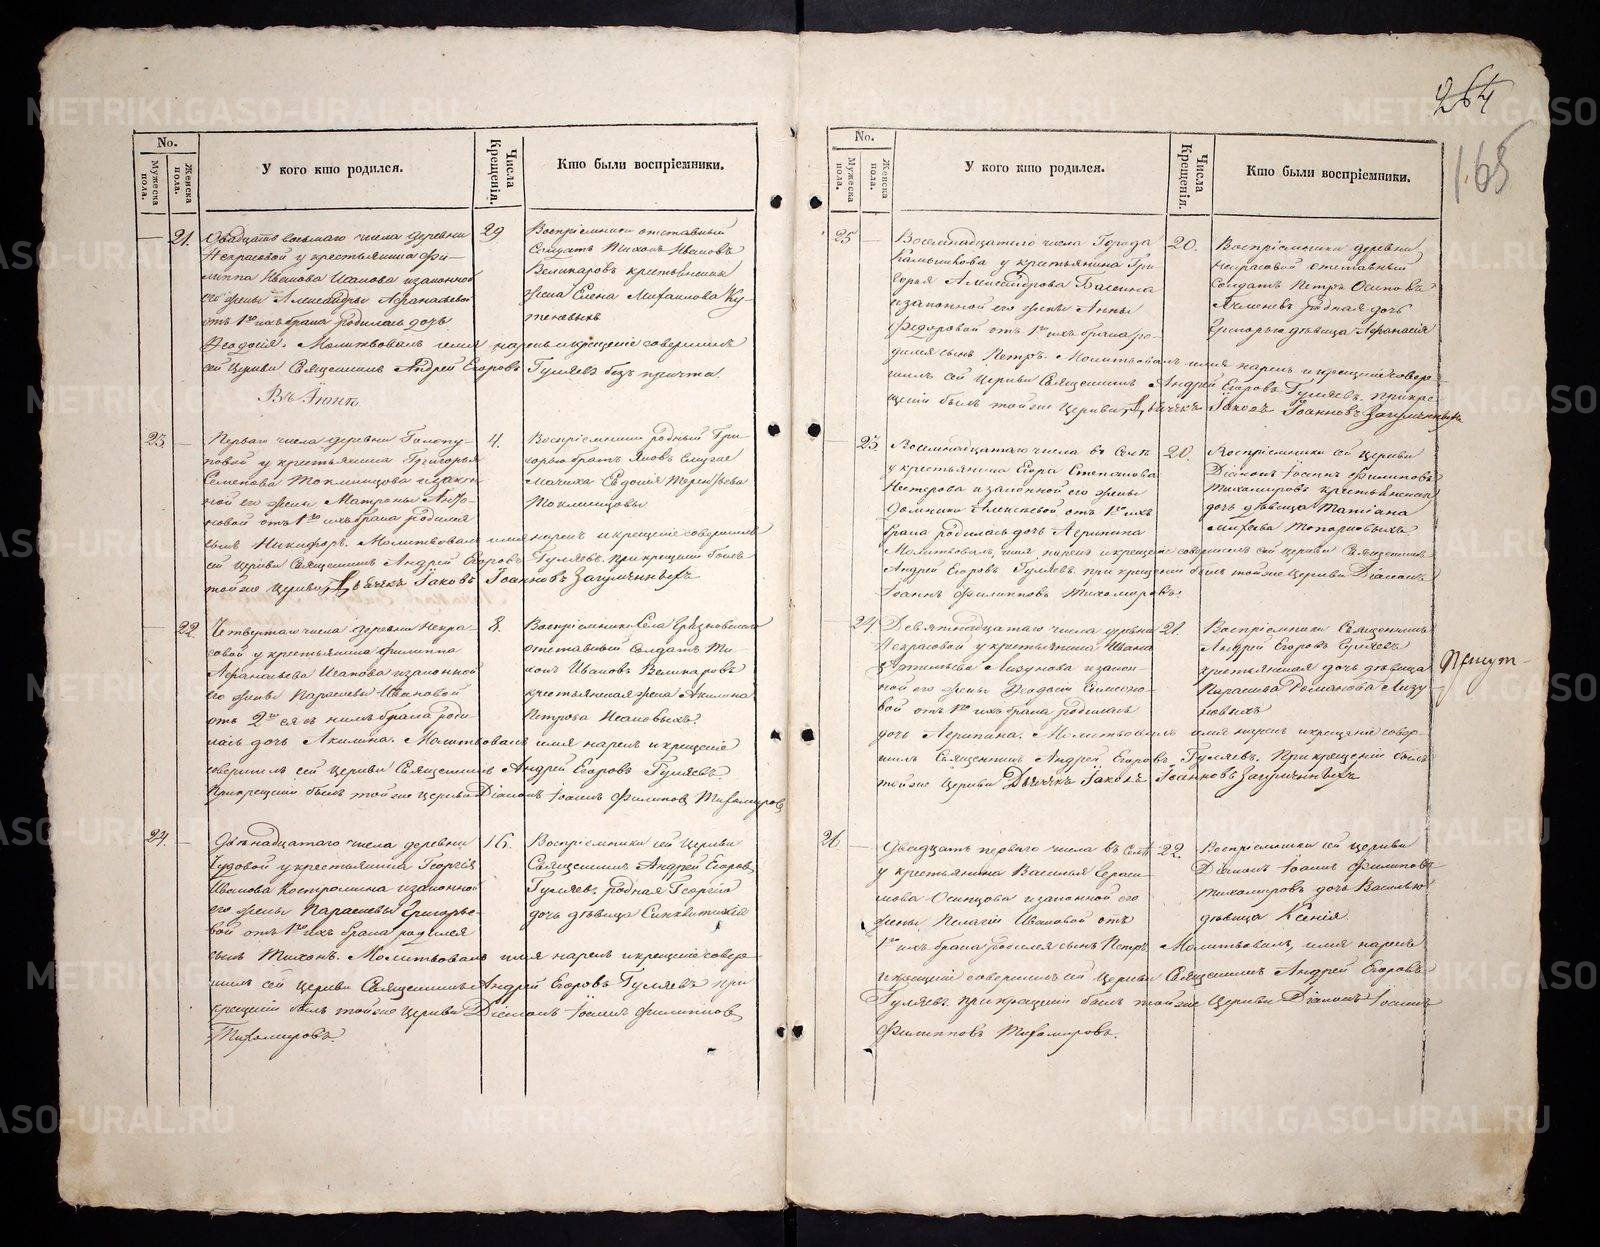 264
165
No.
Мужеска пола.
Женска пола.
У кого кто родился.
Числа Крещенія.
Кто были воспріемники.
21.
Двадцать восьмаго числа деревни
Некрасовой у крестьянина Фи-
липпа Иванова Исакова и законной
его жены Александры Афанасьевой
отъ 1го ихъ брака родилась дочь
Ѳеодосія. Молитвовалъ имя нарекъ и крещеніе совершилъ
сей Церкви Священникъ Андрей Егоровъ Гуляевъ безъ причта
29
Воспріемники отставный
Солдатъ Тихонъ Ивановъ
крестьянская
жена Елена Михаилова
Въ Іюнѣ
23.
Перваго числа деревни
у крестьянина Григорья
Семенова и закон-
ной его жены Матроны
отъ 1го ихъ брака родился
сынъ Никифоръ. Молитвовалъ имя нарекъ и крещеніе совершилъ
сей Церкви Священникъ Андрей Егоровъ Гуляевъ. При крещеніи былъ
той же Церкви Дьячекъ Іаковъ Іоанновъ
4.
Воспріемники родный Гри-
горью братъ Яковъ
Мачиха Евдокія Терентьева
22.
Четвертаго числа деревни Некра-
совой у крестьянина Филиппа
Афанасьева Исакова и законной
его жены Параскевы Ивановой
отъ 2го ея съ нимъ брака роди-
лась дочь Акилина. Молитвовалъ имя нарекъ и крещеніе
совершилъ сей Церкви Священникъ Андрей Егоровъ Гуляевъ.
При крещеніи былъ той же Церкви Діаконъ Іоаннъ Филиповъ Тихомировъ
8.
Воспріемники Села
отставный Солдатъ Ти-
хонъ Ивановъ
крестьянская жена Акилина
Петрова Исаковыхъ.
24.
Двѣнадцатаго числа деревни
Чудовой у крестьянина Георгія
Иванова Костромина и законной
его жены Параскевы Григорье-
вой отъ 1го ихъ брака родился
сынъ Тихонъ. Молитвовалъ имя нарекъ и крещеніе совер-
шилъ сей Церкви Священникъ Андрей Егоровъ Гуляевъ при
крещеніи былъ той же Церкви Діаконъ Іоаннъ Филипповъ
Тихомировъ.
16.
Воспріемники сей Церкви
Священникъ Андрей Егоровъ
Гуляевъ, родная Георгію
дочь дѣвица Синклитикія
No.
Мужеска пола.
Женска пола.
У кого кто родился.
Числа Крещенія.
Кто были воспріемники.
25
Восемнадцатаго числа Города
Камышлова у крестьянина Гри-
горья Александрова
и законной его жены Анны
Федоровой отъ 1го ихъ брака ро-
дился сынъ Петръ. Молитвовалъ имя нарекъ и крещеніе совер-
шилъ сей Церкви Священникъ Андрей Егоровъ Гуляевъ. При кре-
щеніи былъ той же Церкви Дьячекъ Іаковъ Іоанновъ
20.
Воспріемники деревни
Некрасовой отставный
Солдатъ Петръ Осиповъ
родная дочь
Григорью дѣвица Афанасія
23.
Восемнадцатаго числа въ Селѣ
у крестьянина Егора Степанова
Нестерова и законной его жены
Домники Алексѣевой отъ 1го ихъ
брака родилась дочь Агрипина
Молитвовалъ имя нарекъ и крещеніе совершилъ сей Церкви Священникъ
Андрей Егоровъ Гуляевъ при крещеніи былъ той же Церкви Діаконъ
Іоаннъ Филипповъ Тихомировъ.
20.
Воспріемники сей Церкви
Діаконъ Іоаннъ Филиповъ
Тихомировъ крестьянская
дочь дѣвица Татіана
24.
Девятнадцатаго числа деревни
Некрасовой у крестьянина Ивана
Лизунова и закон-
ной его жены Ѳеодосіи Симеоно-
вой отъ 1го ихъ брака родилась
дочь Агрипина. Молитвовалъ имя нарекъ и крещеніе совер-
шилъ Священникъ Андрей Егоровъ Гуляевъ. При крещеніи былъ
той же Церкви Дьячекъ Іаковъ Іоанновъ
21.
Воспріемники Священникъ
Андрей Егоровъ Гуляевъ
крестьянская дочь дѣвица
Параскева Романова Лизу-
новыхъ
26.
Двадцать перваго числа въ Селѣ
у крестьянина Василья Гераси-
мова Осинцова и законной его
жены Пелагіи Ивановой отъ
1го ихъ брака родился сынъ Петръ Молитвовалъ, имя нарекъ
и крещеніе совершилъ сей Церкви Священникъ Андрей Егоровъ
Гуляевъ. При крещеніи былъ той же Церкви Діаконъ Іоаннъ
Филипповъ Тихомировъ.
22.
Воспріемники сей Церкви
Діаконъ Іоаннъ Филиповъ
Тихомировъ дочь Василью
дѣвица Ксенія.
METRIKI.GASO-URAL.RU